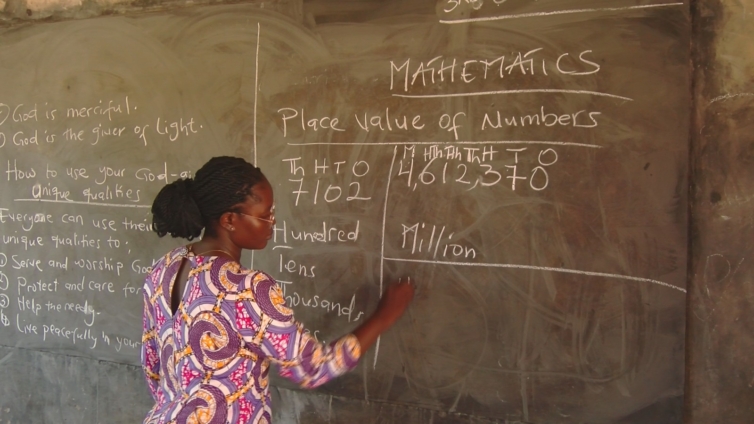 God is merciful.
God is the giver of light.
How to use your God-
Unique qualities
Everyone can use their
unique qualities to:
Serve and worship God
Protect and care for
Help the needy.
Live peacefully in your
MATHEMATICS
Place Value of Numbers
Th H T O
7102
M HTh TTh Th H T O
4,612,370
Hundred
Tens
Thousands
Million